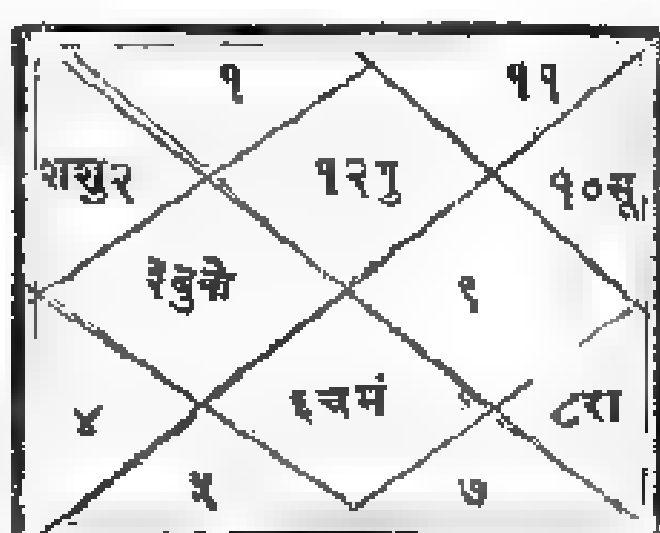 १ ११
शशु२ १२गु १०सू
३बुके ९
४ ६चमं ८रा
५ ७